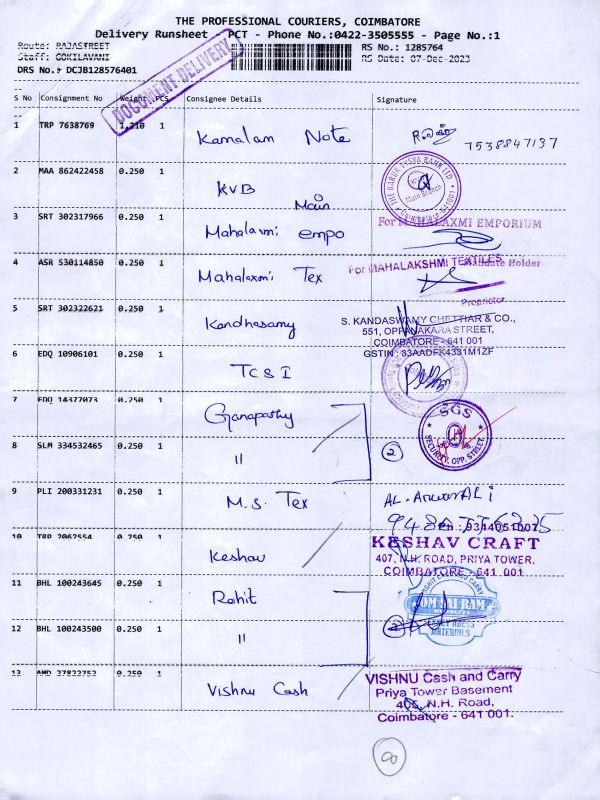 THE PROFESSIONAL COURIERS, COIMBATORE
Delivery Runsheet - PCT - Phone No.:0422-3505555 - Page No.:1
Route: RAJASTREET RS No.: 1285764
Staff: GOKILAVANI RS Date: 07-Dec-2023
DRS No.: DCJB128576401
DOCUMENT DELIVERY
S No Consignment No Weight PCS Consignee Details Signature
1 TRP 7638769 1.210 1 Kamalam Note 7538847137
2 MAA 862422458 0.250 1 KVB Main
THE KARUR VYSYA BANK LTD
Main Branch
Coimbatore
3 SRT 302317966 0.250 1 Mahalaxmi empo
For MAHALAXMI EMPORIUM
Mandate Holder
4 ASR 530114850 0.250 1 Mahalaxmi Tex
For MAHALAKSHMI TEXTILES
Proprietor
5 SRT 302322621 0.250 1 Kandhasamy
S. KANDASWAMY CHETTIAR & CO.,
551, OPPANAKARA STREET,
COIMBATORE - 641 001
GSTIN : 33AADFK4331M1ZF
6 EDQ 10906101 0.250 1 TCSI
7 EDQ 14377073 0.250 1 Ganapathy
SGS
SECURITY, OPP. STREET.
8 SLM 334532465 0.250 1 " 2
9 PLI 200331231 0.250 1 M.S. Tex AL. Anwar ALi
10 TRP 2062554 0.250 1 Keshav
Ph : 9344051007
KESHAV CRAFT
407, N.H. ROAD, PRIYA TOWER.
COIMBATORE - 641 001
11 BHL 100243645 0.250 1 Rohit
ROHIT CARRY
OM SAI RAM
PRODUCTS
FANCY DRESS
MATERIALS
12 BHL 100243500 0.250 1 " 2
13 AMD 27822752 0.250 1 Vishnu Cash
VISHNU Cash and Carry
Priya Tower Basement
405, N.H. Road,
Coimbatore - 641 001.